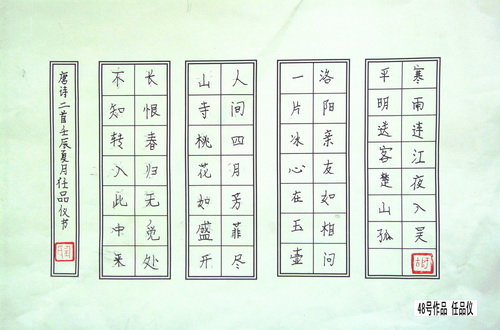 寒雨连江夜入吴
平明送客楚山孤
洛阳亲友如相问
一片冰心在玉壶
人间四月芳菲尽
山寺桃花如盛开
长恨春归无觅处
不知转入此中来
唐诗二首壬辰夏月任品仪书
48号作品 任品仪